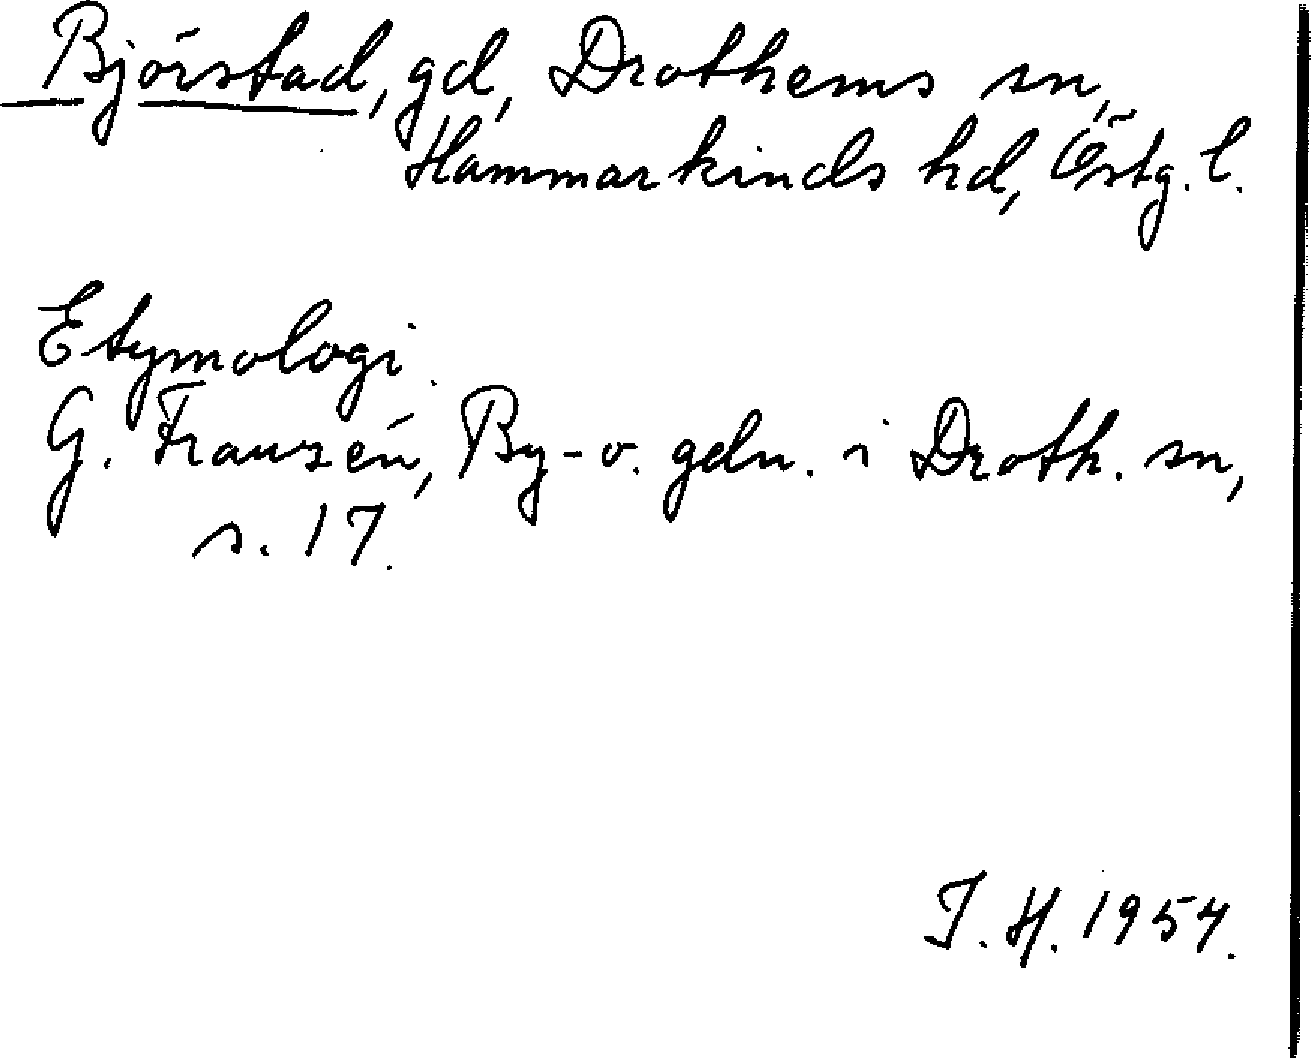 Björstad, gd, Drothems sn,
Hammarkinds hd, Östg. l.
Etymologi.
G. Franzén, By- o. gdn. i Droth. sn,
s. 17.
I. H. 1954.